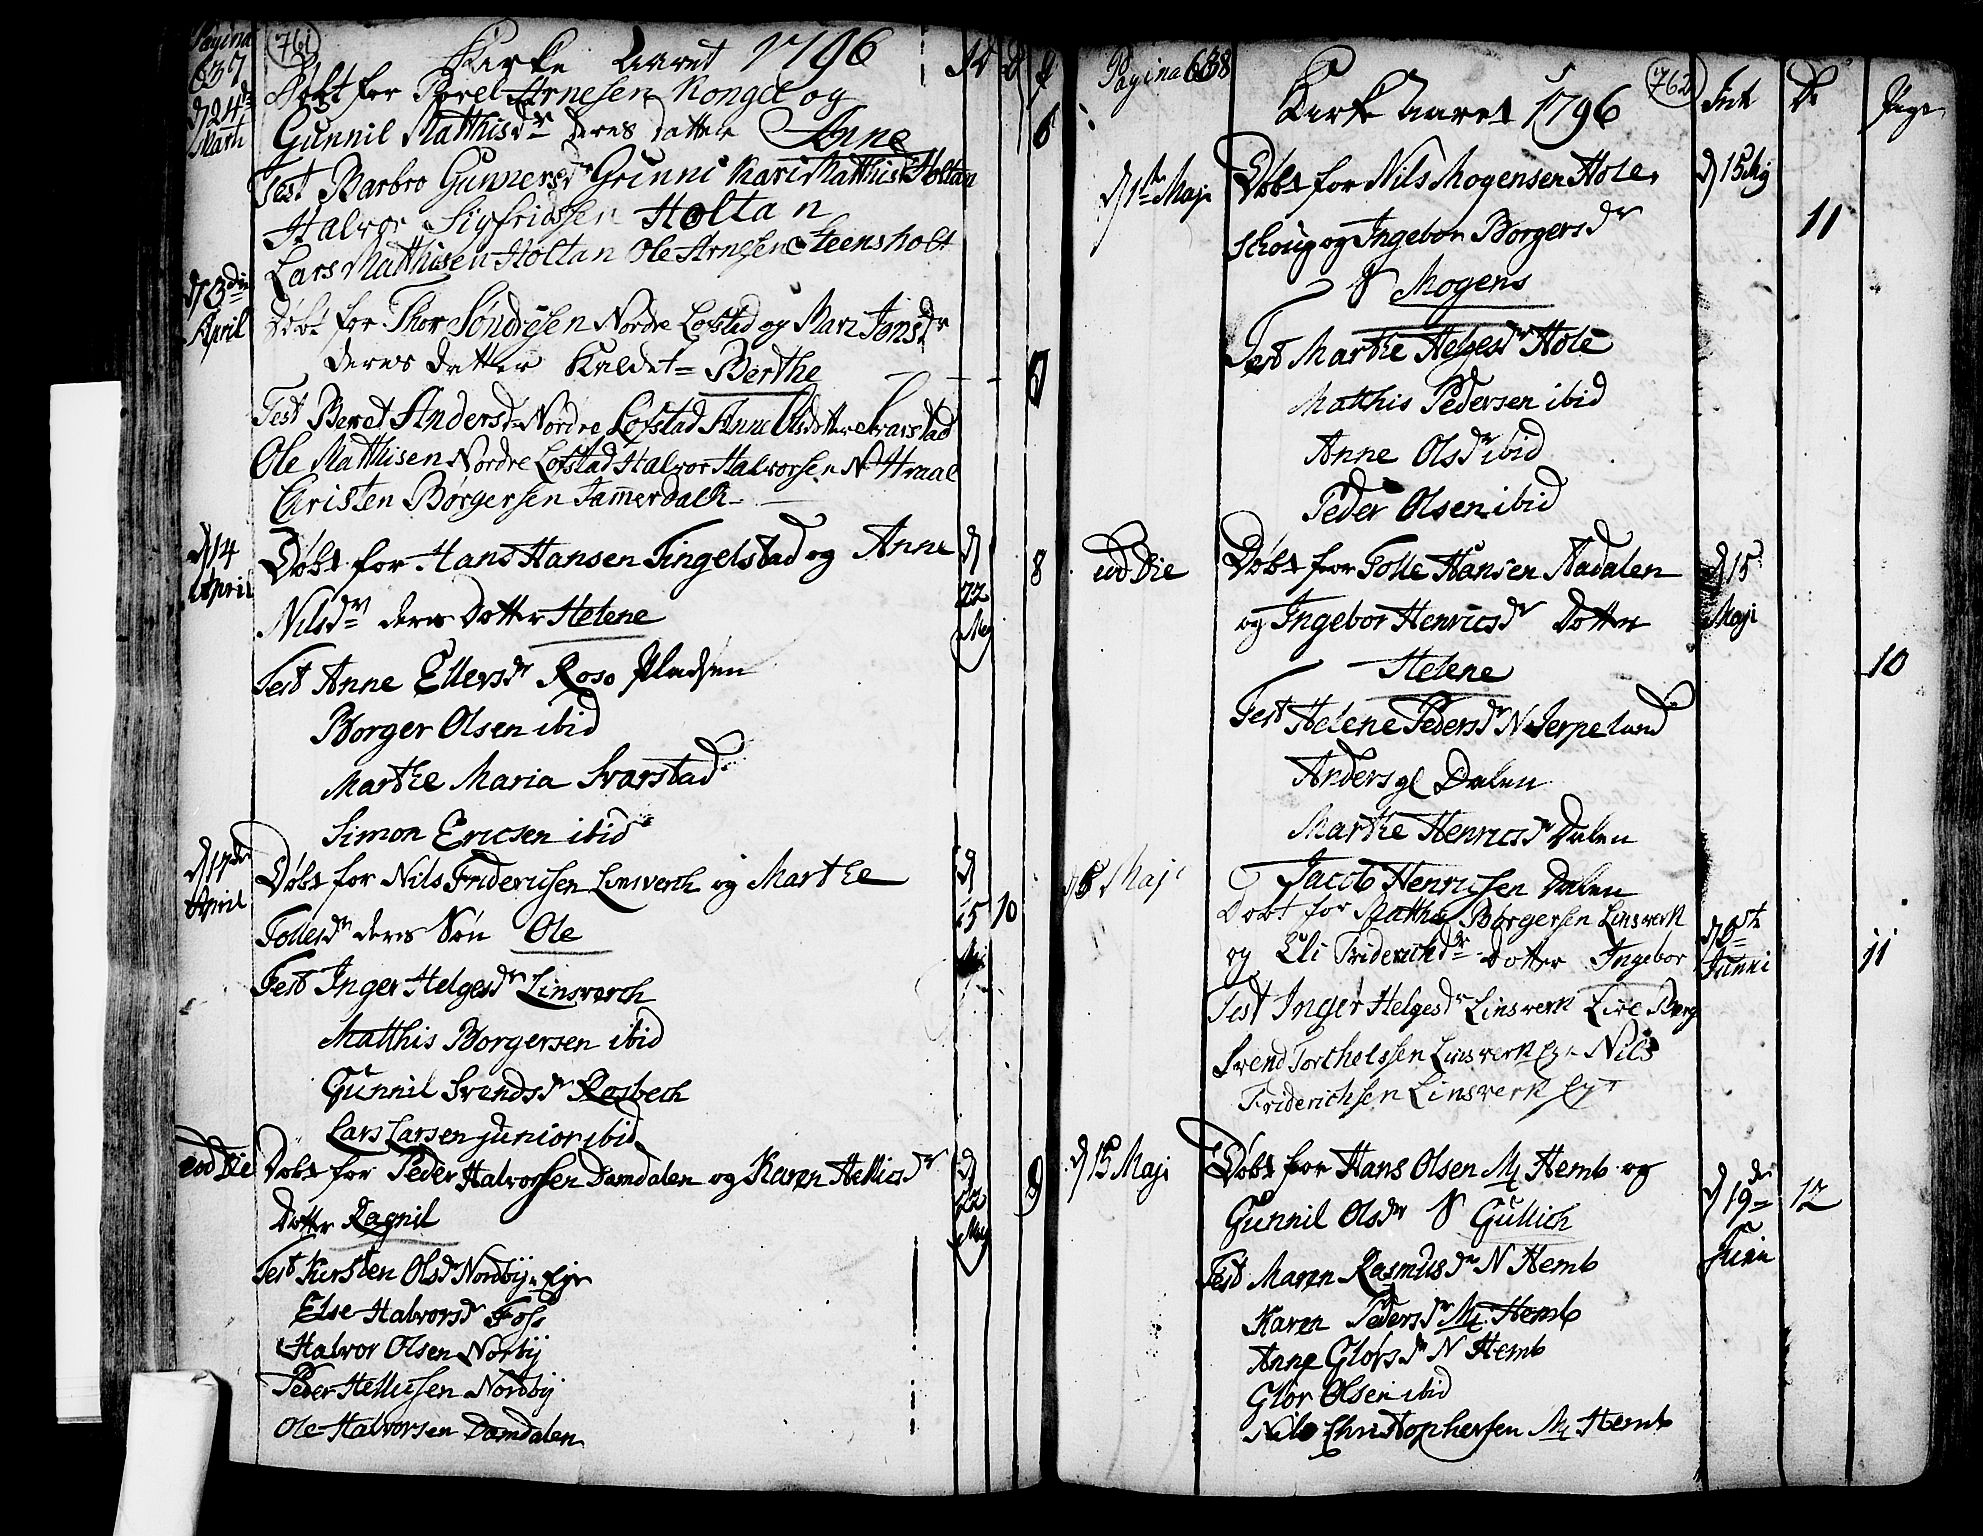 Pagina 637
761
Kirke Aaret 1796
d 24de Marti
Døbt for Povel Arnesen Konge og
Gunnil Matthisdr deres datter Anne
6
Test Barbro Gunnersdr Grinni Kari Matthisdr Holtan
Halvor Sigfridssen Holtan
Lars Matthisen Holtan Ole Arnesen Steensholt
d 3die April
Døbt for Thor Søndresen Nordre Lofstad og Mari Jonsdr
deres datter Kaldet Berthe
7
Test Beret Andersdr Nordre Lofstad Anne Olsdotter Svarstad
Ole Matthisen Nordre Lofstad Halvor Halvorsen N Hraal
Christen Børgersen Jammerdalh
d 14 April
Døbt for Hans Hansen Tingelstad og Anne
d 22 Maj
8
Nilsdr deres Dotter Helene
Test Anne Ellersdr Roso Pladsen
Borger Olsen ibid
Marthe Maria Svarstad
Simon Ericsen ibid
d 17de April
Døbt for Nils Friderichsen Linsverch og Marthe
d 15 Maj
10
Tollesdr deres Søn Ole
Test Inger Helgesdr Linsverch
Matthis Borgersen ibid
Gunnil Svendsdr Rosbech
Lars Larsen junior ibid
eod Die
Døbt for Peder Halvorssen Damdalen og Karen Hellicsdr
d 22 Maj
9
Dotter Ragnil
Test Kirsten Olsdr Nordbÿ Eje
Else Halvorsdr Foss
Halvor Olsen Norbÿ
Peder Hellicsen Nordbÿ
Ole Halvorsen Damdalen
Pagina 638
762
Kirke Aaret 1796
Int
Dr
Pige
d 1te Maji
Døbt for Nils Mogensen Hole
d 15 Maj
11
Schoug og Ingebor Borgersdr
S Mogens
Test Marthe Helgesdr Hole
Matthis Pedersen ibid
Anne Olsdr ibid
Peder Olsen ibid
eod Die
Døbt for Tolle Hansen Aadalen
d 15 Maji
og Ingebor Henricsdr Dotter
Helene
10
Test Helene Pedersdr N Jerpeland
Anders gl Dalen
Marthe Henricsdr Dalen
Jacob Henricsen Dalen
d 8 Maji
Døbt for Matthis Børgersen Linsverk
og Eli Friderichdr Dotter Ingebor
Junni
11
Test Inger Helgesdr Linsverk Live Berg
Svend Torchelssen Linsverk Eje Nils
Friderichsen Linsverk Eje
d 15 Maji
Døbt for Hans Olsen M Hemb og
d 19de Juni
12
Gunnil Olsdr S Gullich
Test Maren Rasmusdr N Hemb
Karen Pedersdr M Hemb
Anne Glorsdr N Hemb
Glor Olsen ibid
Nils Christophersen M Hemb